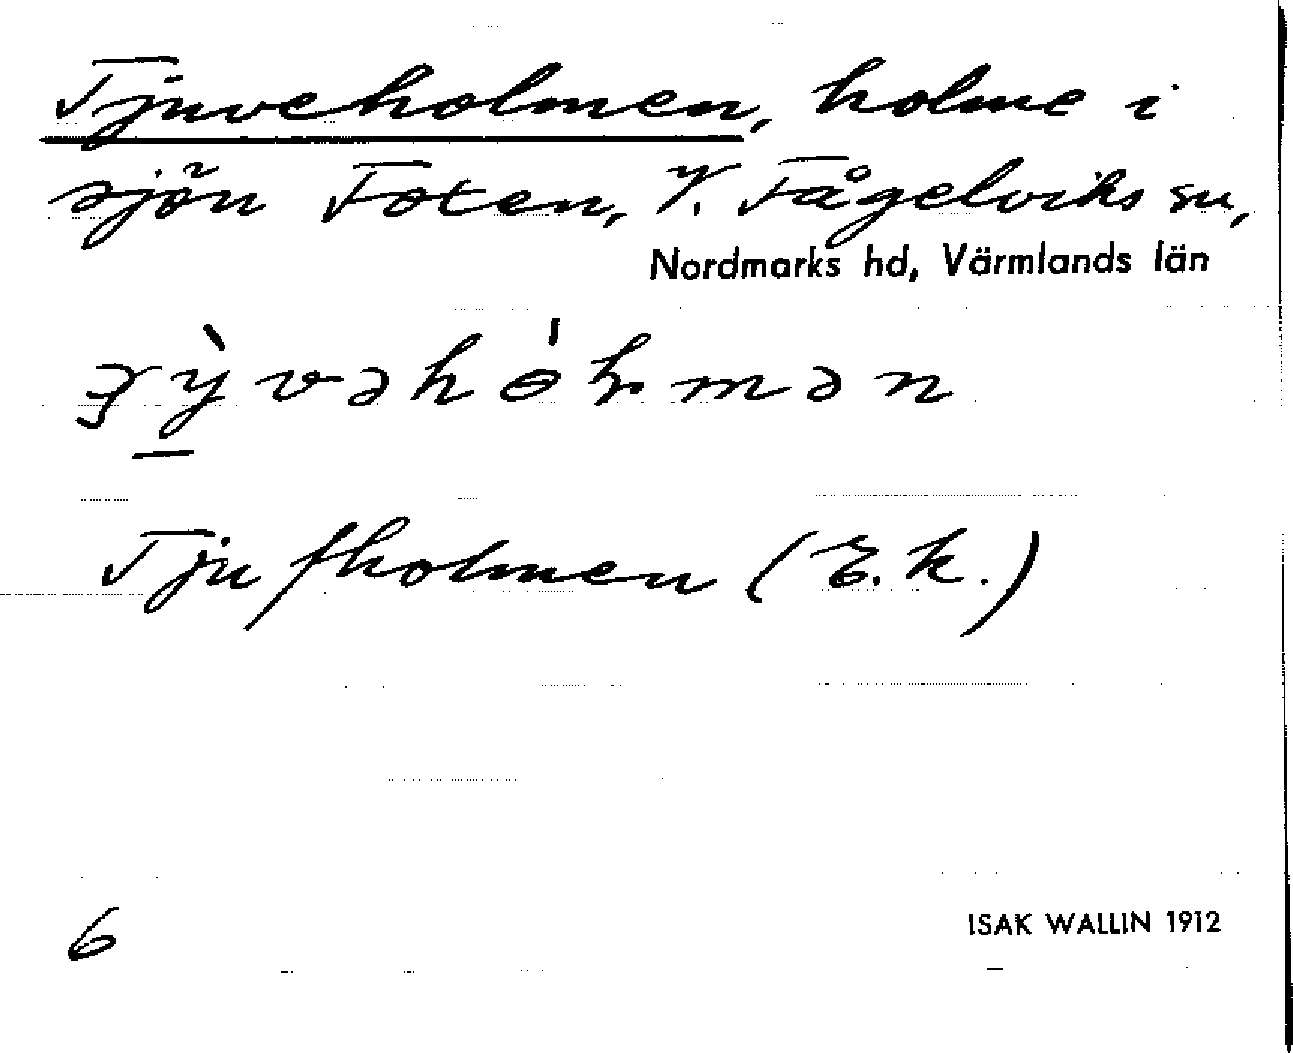 Tjuveholmen, holme i
sjön Foxen, V. Fågelviks sn,
Nordmarks hd, Värmlands län
Tjufholmen (E.k.)
6
ISAK WALLIN 1912